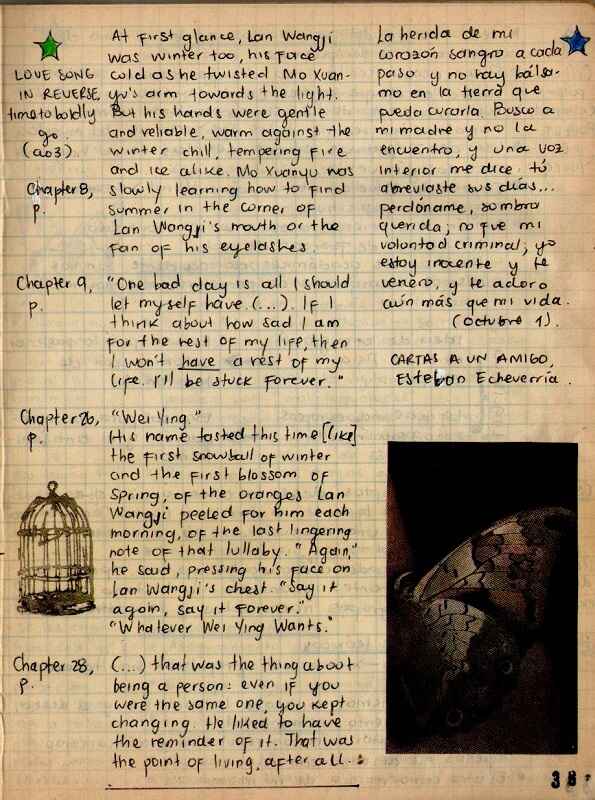 LOVE SONG
IN REVERSE,
time to boldly
go.
(ao3).
At first glance, Lan Wangji
was winter too, his face
cold as he twisted Mo Xuan-
yu's arm towards the light.
But his hands were gentle
and reliable, warm against the
winter chill, tempering fire
and ice alike. Mo Xuanyu was
slowly learning how to find
summer in the corner of
Lan Wangji's mouth or the
fan of his eyelashes.
Chapter 8,
p.
Chapter 9,
p.
"One bad day is all I should
let myself have. (...). If I
think about how sad I am
for the rest of my life, then
I won't have a rest of my
life. I'll be stuck forever."
Chapter 26,
p.
"Wei Ying."
His name tasted this time [like]
the first snowball of winter
and the first blossom of
Spring, of the oranges Lan
Wangji peeled for him each
morning, of the last lingering
note of that lullaby. "Again,"
he said, pressing his face on
Lan Wangji's chest. "Say it
again, say it forever."
"Whatever Wei Ying Wants."
Chapter 28,
p.
(...) that was the thing about
being a person: even if you
were the same one, you kept
changing. He liked to have
the reminder of it. That was
the point of living, after all.
La herida de mi
corazón sangra a cada
paso y no hay bálsa-
mo en la tierra que
pueda curarla. Busco a
mi madre y no la
encuentro, y una voz
interior me dice: tú
abreviaste sus días...
perdóname, sombra
querida; no fue mi
voluntad criminal; yo
estoy inocente y te
venero, y te adoro
aún más que mi vida.
(Octubre 1).
CARTAS A UN AMIGO,
Esteban Echeverría.